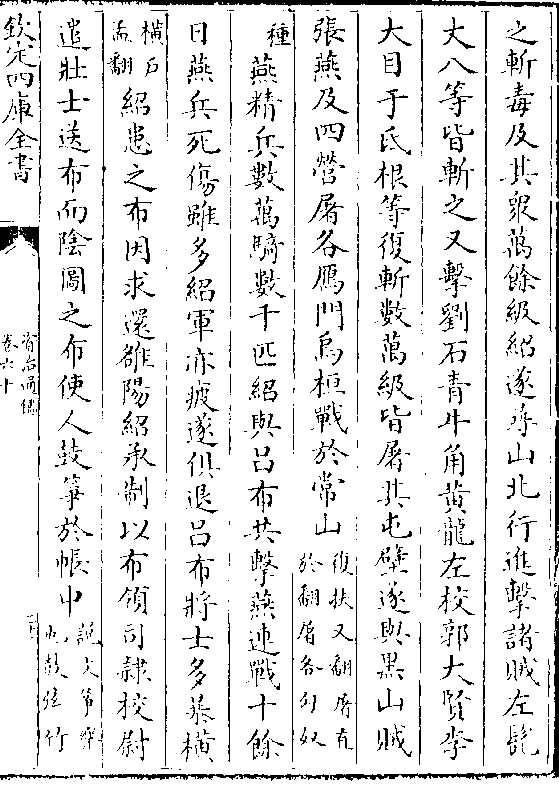 之斬毒及其衆萬餘級紹遂尋山北行進擊諸賊左髭
丈八等皆斬之又擊劉石青牛角黃龍左校郭大賢李
大目于氐根等復斬數萬級皆屠其屯壁遂與黑山賊
張燕及四營屠各鴈門烏桓戰於常山
復扶又翻屠直
於翻屠各匈奴
種
燕精兵數萬騎數千匹紹與吕布共擊燕連戰十餘
日燕兵死傷雖多紹軍亦疲遂俱退吕布將士多暴橫
横户
孟翻
紹患之布因求還雒陽紹承制以布領司隷校尉
遣壯士送布而隂圖之布使人鼓箏於帳中
說文箏
鼓弦竹
欽定四庫全書
資治通鑑
卷六十